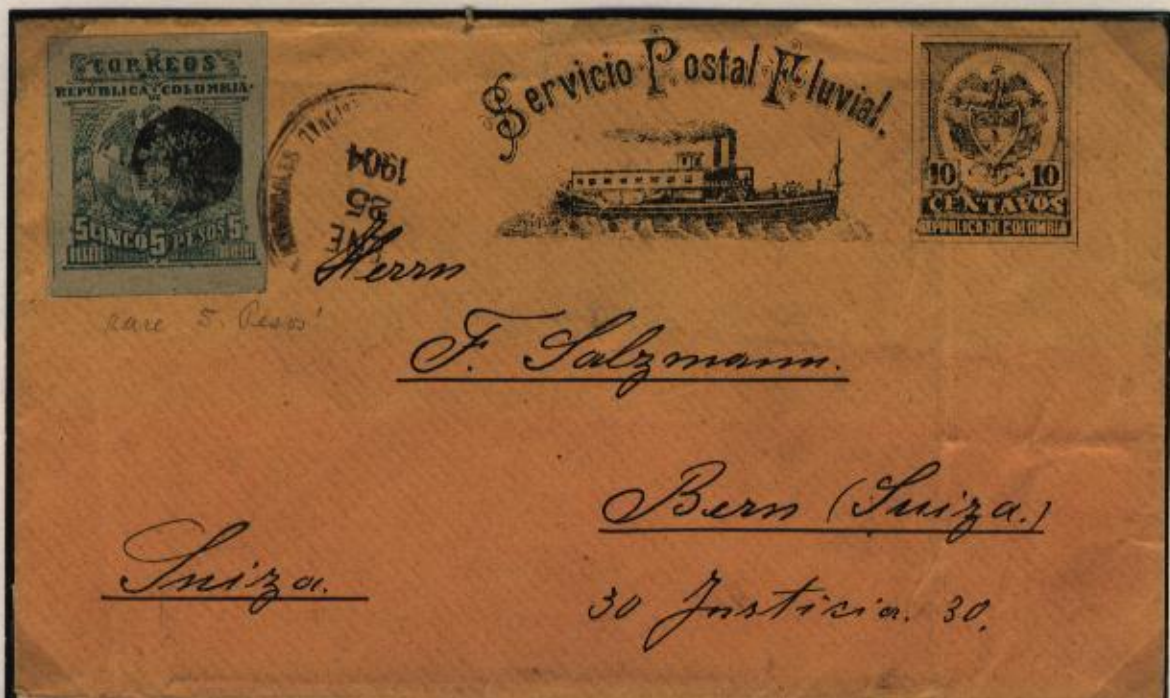 CORREOS
REPÚBLICA COLOMBIA
5 CINCO 5 PESOS 5
ENE
5
1904
Servicio Postal Fluvial.
10 10
CENTAVOS
REPUBLICA DE COLOMBIA
rare 5 Pesos
Herrn
F. Salzmann.
Bern (Suiza.)
Suiza.
30 Justicia. 30.